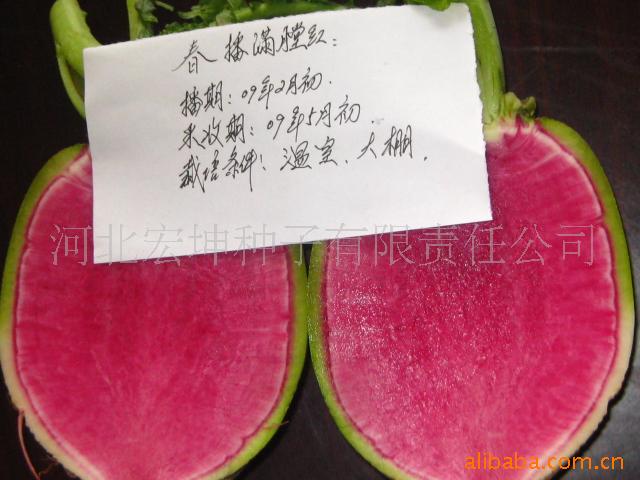 春播满膛红：
播期：09年2月初．
采收期：09年5月初．
栽培条件：温室、大棚．
河北宏坤种子有限责任公司
alibaba.com.cn